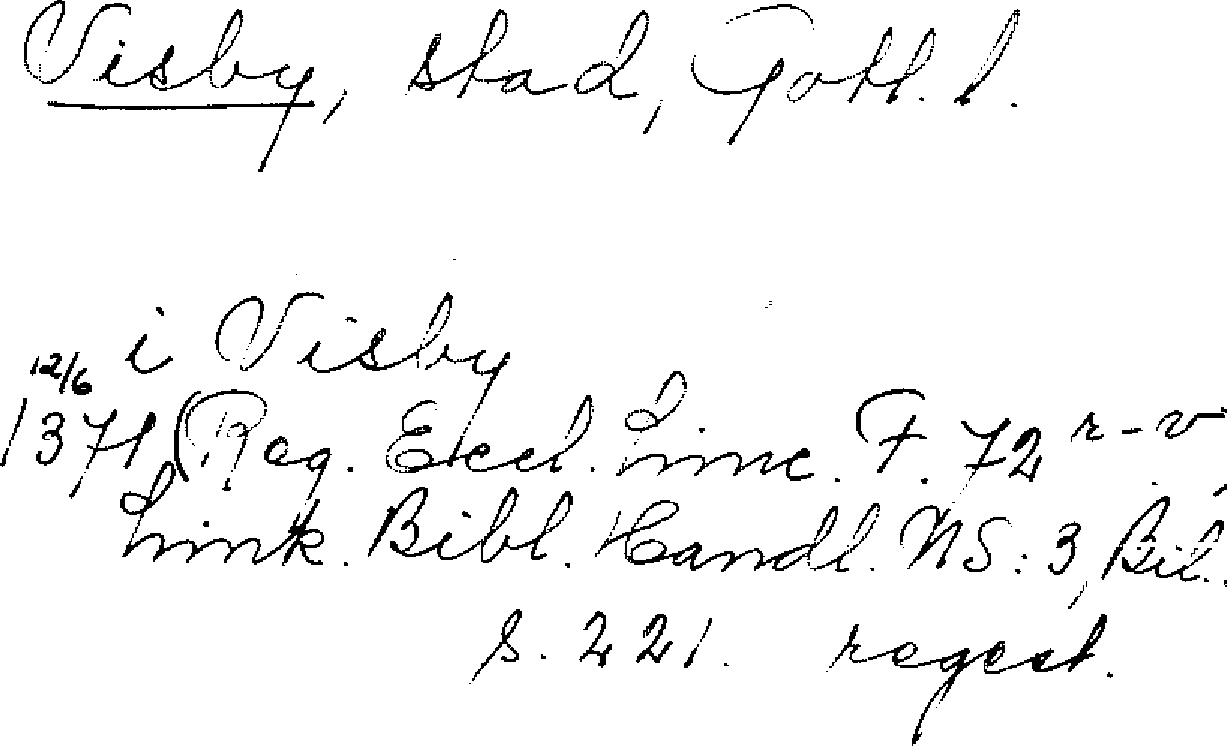 Visby, stad, Gotl. l.
i Visby
12/6
1371 (Reg. Eccl. Linc. F. 72 r-v,
Link. Bibl. Handl. NS: 3, Bil.
s. 221. regest.